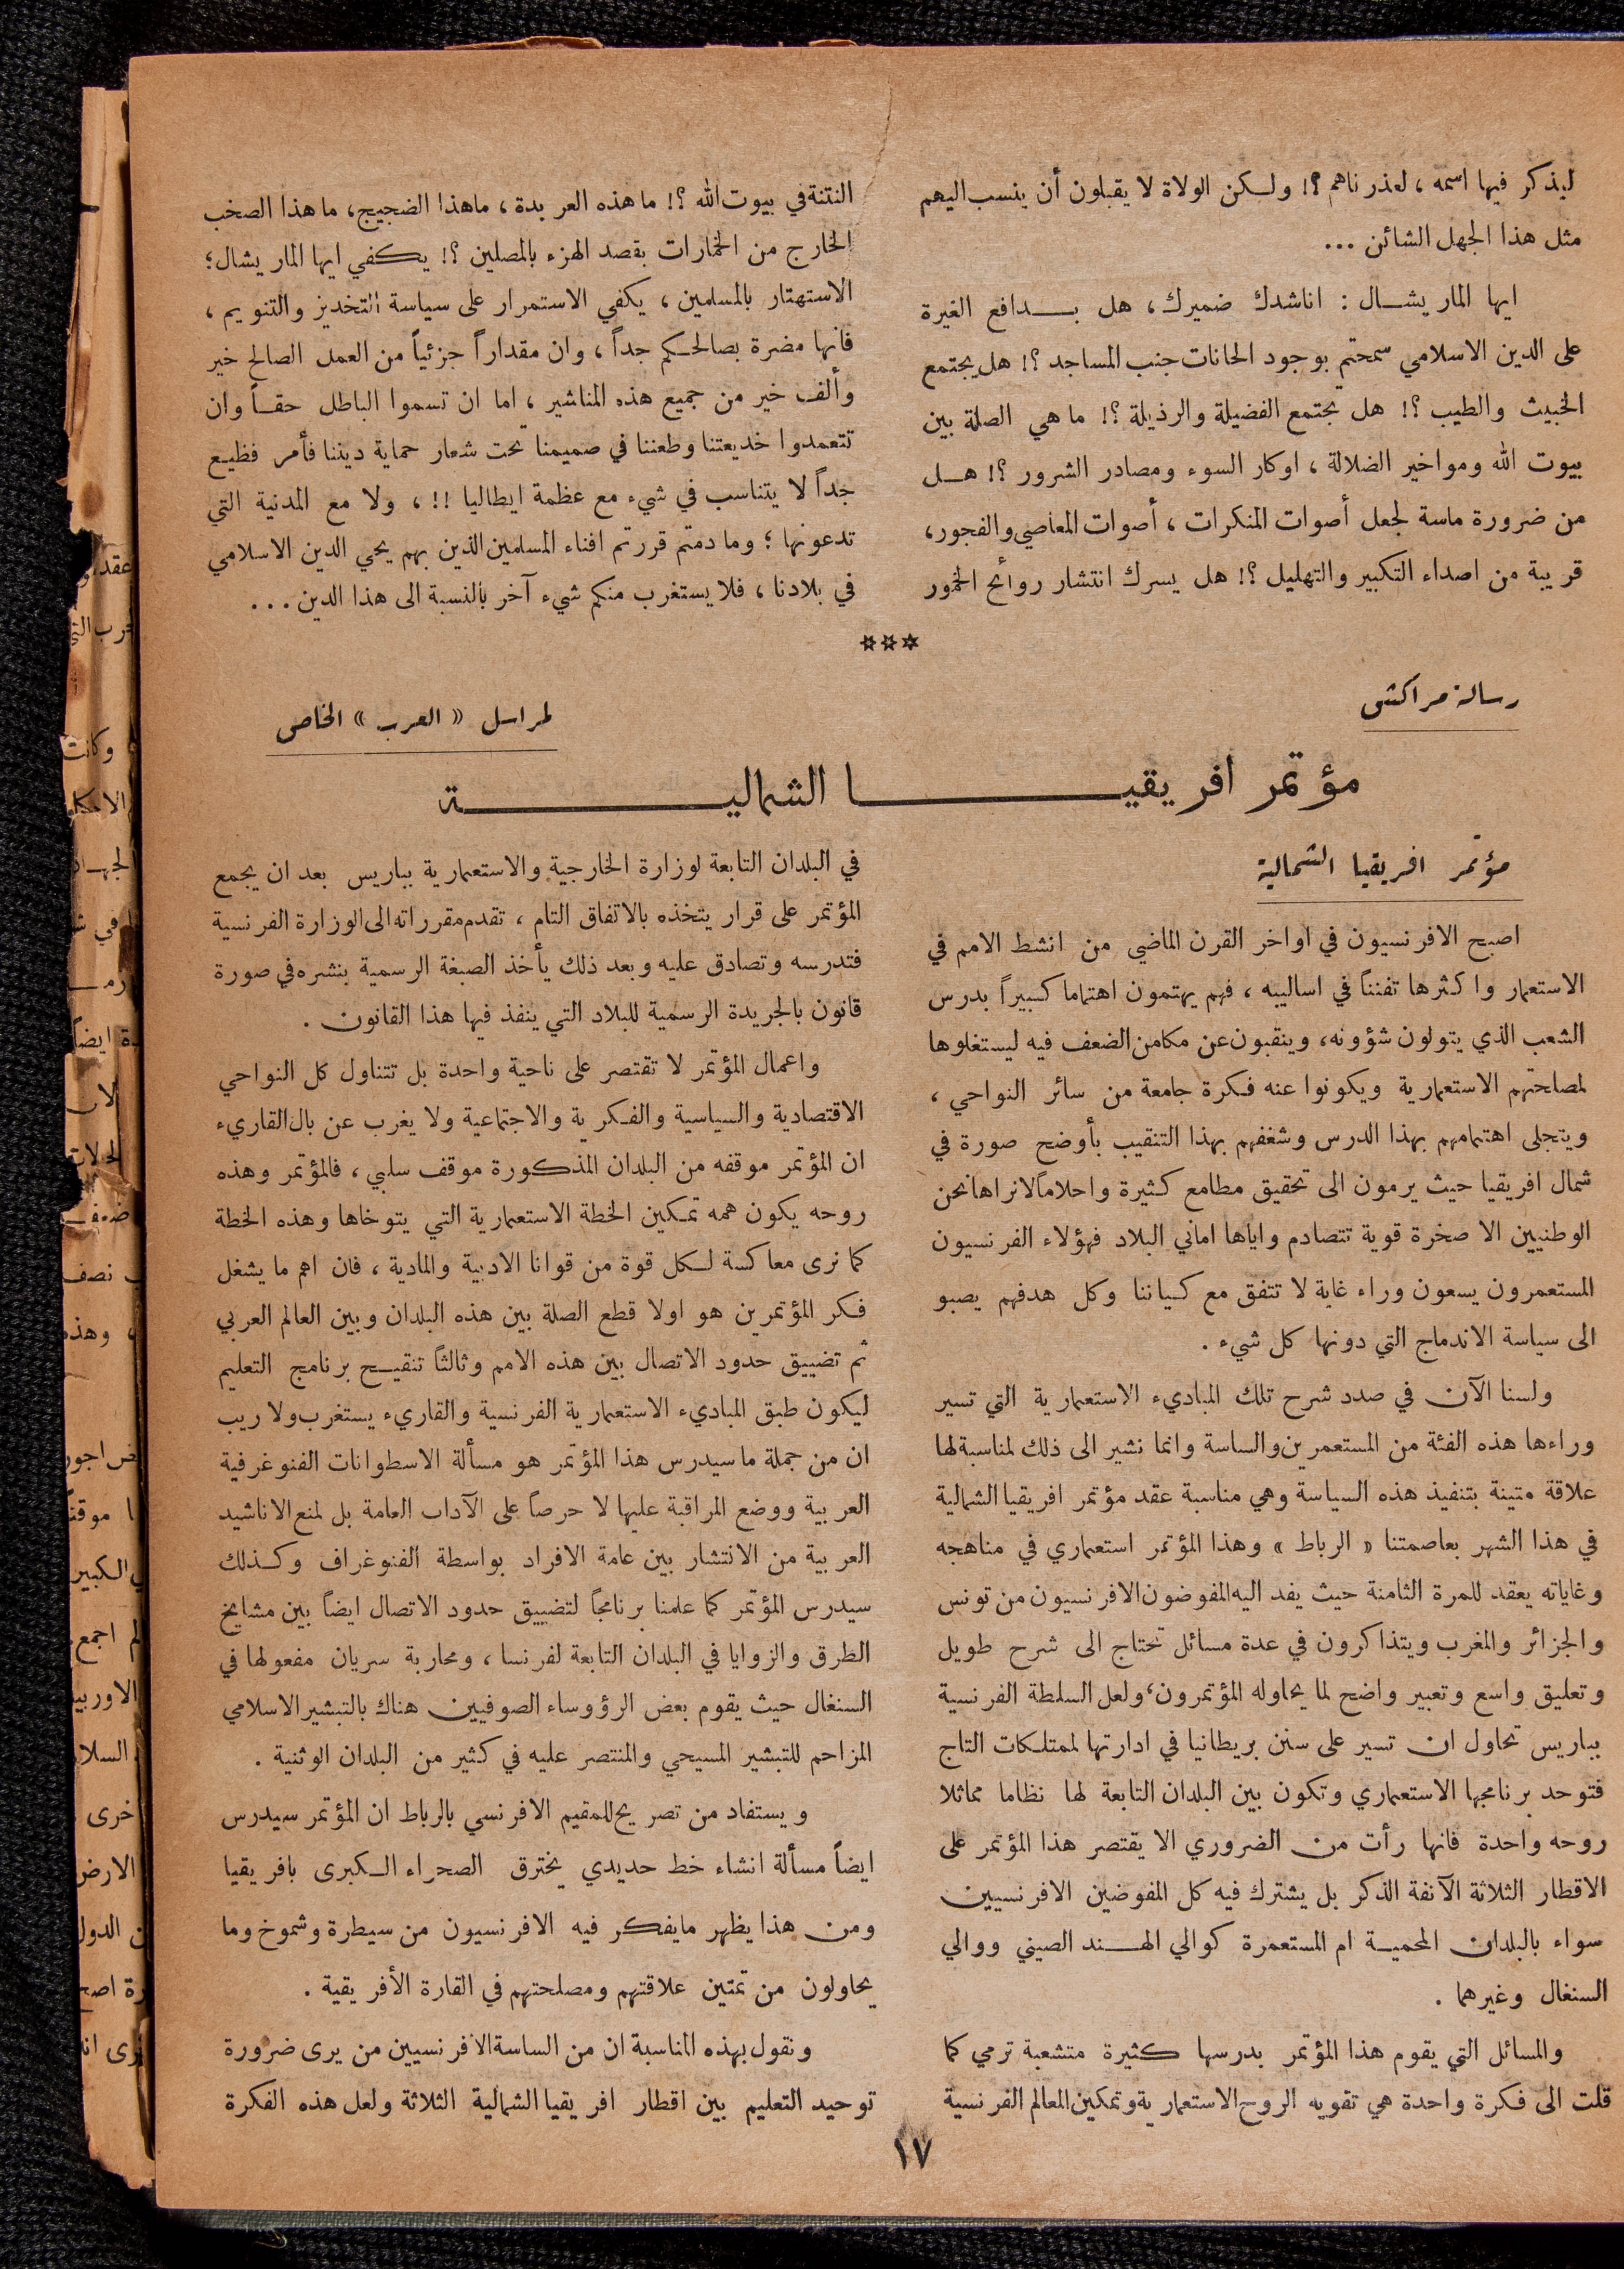 ليذكر فيها اسمه ، لعذرناهم ؟! ولكن الولاة لا يقبلون أن ينسب اليهم
مثل هذا الجهل الشائن ...
ايها الماريشال : اناشدك ضميرك ، هل بدافع الغيرة
على الدين الاسلامي سمحتم بوجود الحانات جنب المساجد ؟! هل يجتمع
الخبيث والطيب ؟! هل تجتمع الفضيلة والرذيلة ؟! ما هي الصلة بين
بيوت الله ومواخير الضلالة ، اوكار السوء ومصادر الشرور ؟! هل
من ضرورة ماسة لجعل أصوات المنكرات ، أصوات المعاصي والفجور ،
قريبة من اصداء التكبير والتهليل ؟! هل يسرك انتشار روائح الخمور
النتنة في بيوت الله ؟! ما هذه العربدة ، ماهذا الضجيج ، ما هذا الصخب
الخارج من الخمارات بقصد الهزء بالمصلين ؟! يكفي ايها الماريشال ؛
الاستهتار بالمسلمين ، يكفي الاستمرار على سياسة التخدير والتنويم ،
فانها مضرة بصالحكم جداً ، وان مقداراً جزئياً من العمل الصالح خير
وألف خير من جميع هذه المناشير ، اما ان تسموا الباطل حقاً وان
تتعمدوا خديعتنا وطعننا في صميمنا تحت شعار حماية ديننا فأمر فظيع
جداً لا يتناسب في شيء مع عظمة ايطاليا !! ، ولا مع المدنية التي
تدعونها ؛ وما دمتم قررتم افناء المسلمين الذين بهم يحي الدين الاسلامي
في بلادنا ، فلا يستغرب منكم شيء آخر بالنسبة الى هذا الدين ...
***
رسالة مراكش
لمراسل « العرب » الخاص
مؤتمر افريقيا الشمالية
مؤتمر افريقيا الشمالية
اصبح الافرنسيون في اواخر القرن الماضي من انشط الامم في
الاستعمار واكثرها تفنناً في اساليبه ، فهم يهتمون اهتماما كبيراً بدرس
الشعب الذي يتولون شؤونه ، وينقبون عن مكامن الضعف فيه ليستغلوها
لمصلحتهم الاستعمارية ويكونوا عنه فكرة جامعة من سائر النواحي ،
ويتجلى اهتمامهم بهذا الدرس وشغفهم بهذا التنقيب بأوضح صورة في
شمال افريقيا حيث يرمون الى تحقيق مطامع كثيرة واحلاماً لانراها نحن
الوطنيين الا صخرة قوية تتصادم واياها اماني البلاد فهؤلاء الفرنسيون
المستعمرون يسعون وراء غاية لا تتفق مع كياننا وكل هدفهم يصبو
الى سياسة الاندماج التي دونها كل شيء .
ولسنا الآن في صدد شرح تلك المباديء الاستعمارية التي تسير
وراءها هذه الفئة من المستعمرين والساسة وانما نشير الى ذلك لمناسبة لها
علاقة متينة بتنفيذ هذه السياسة وهي مناسبة عقد مؤتمر افريقيا الشمالية
في هذا الشهر بعاصمتنا « الرباط » وهذا المؤتمر استعماري في مناهجه
وغاياته يعقد للمرة الثامنة حيث يفد اليه المفوضون الافرنسيون من تونس
والجزائر والمغرب ويتذاكرون في عدة مسائل تحتاج الى شرح طويل
وتعليق واسع وتعبير واضح لما يحاوله المؤتمرون ، ولعل السلطة الفرنسية
بباريس تحاول ان تسير على سنن بريطانيا في ادارتها لممتلكات التاج
فتوحد برنامجها الاستعماري وتكون بين البلدان التابعة لها نظاما مماثلا
روحه واحدة فانها رأت من الضروري الا يقتصر هذا المؤتمر على
الاقطار الثلاثة الآنفة الذكر بل يشترك فيه كل المفوضين الافرنسيين
سواء بالبلدان المحمية ام المستعمرة كوالي الهند الصيني ووالي
السنغال وغيرهما .
والمسائل التي يقوم هذا المؤتمر بدرسها كثيرة متشعبة ترمي كما
قلت الى فكرة واحدة هي تقويه الروح الاستعمارية وتمكين المعالم الفرنسية
في البلدان التابعة لوزارة الخارجية والاستعمارية بباريس بعد ان يجمع
المؤتمر على قرار يتخذه بالاتفاق التام ، تقدم مقرراته الى الوزارة الفرنسية
فتدرسه وتصادق عليه وبعد ذلك يأخذ الصبغة الرسمية بنشره في صورة
قانون بالجريدة الرسمية للبلاد التي ينفذ فيها هذا القانون .
واعمال المؤتمر لا تقتصر على ناحية واحدة بل تتناول كل النواحي
الاقتصادية والسياسية والفكرية والاجتماعية ولا يغرب عن بال القاريء
ان المؤتمر موقفه من البلدان المذكورة موقف سلبي ، فالمؤتمر وهذه
روحه يكون همه تمكين الخطة الاستعمارية التي يتوخاها وهذه الخطة
كما نرى معاكسة لكل قوة من قوانا الادبية والمادية ، فان اهم ما يشغل
فكر المؤتمرين هو اولا قطع الصلة بين هذه البلدان وبين العالم العربي
ثم تضييق حدود الاتصال بين هذه الامم وثالثاً تنقيح برنامج التعليم
ليكون طبق المباديء الاستعمارية الفرنسية والقاريء يستغرب ولا ريب
ان من جملة ما سيدرس هذا المؤتمر هو مسألة الاسطوانات الفنوغرفية
العربية ووضع المراقبة عليها لا حرصاً على الآداب العامة بل لمنع الاناشيد
العربية من الانتشار بين عامة الافراد بواسطة الفنوغراف وكذلك
سيدرس المؤتمر كما علمنا برنامجاً لتضييق حدود الاتصال ايضاً بين مشايخ
الطرق والزوايا في البلدان التابعة لفرنسا ، ومحاربة سريان مفعولها في
السنغال حيث يقوم بعض الرؤوساء الصوفيين هناك بالتبشير الاسلامي
المزاحم للتبشير المسيحي والمنتصر عليه في كثير من البلدان الوثنية .
ويستفاد من تصريح للمقيم الافرنسي بالرباط ان المؤتمر سيدرس
ايضاً مسألة انشاء خط حديدي يخترق الصحراء الكبرى بافريقيا
ومن هذا يظهر مايفكر فيه الافرنسيون من سيطرة وشموخ وما
يحاولون من تمتين علاقتهم ومصلحتهم في القارة الأفريقية .
ونقول بهذه المناسبة ان من الساسة الافرنسيين من يرى ضرورة
توحيد التعليم بين اقطار افريقيا الشمالية الثلاثة ولعل هذه الفكرة
١٧